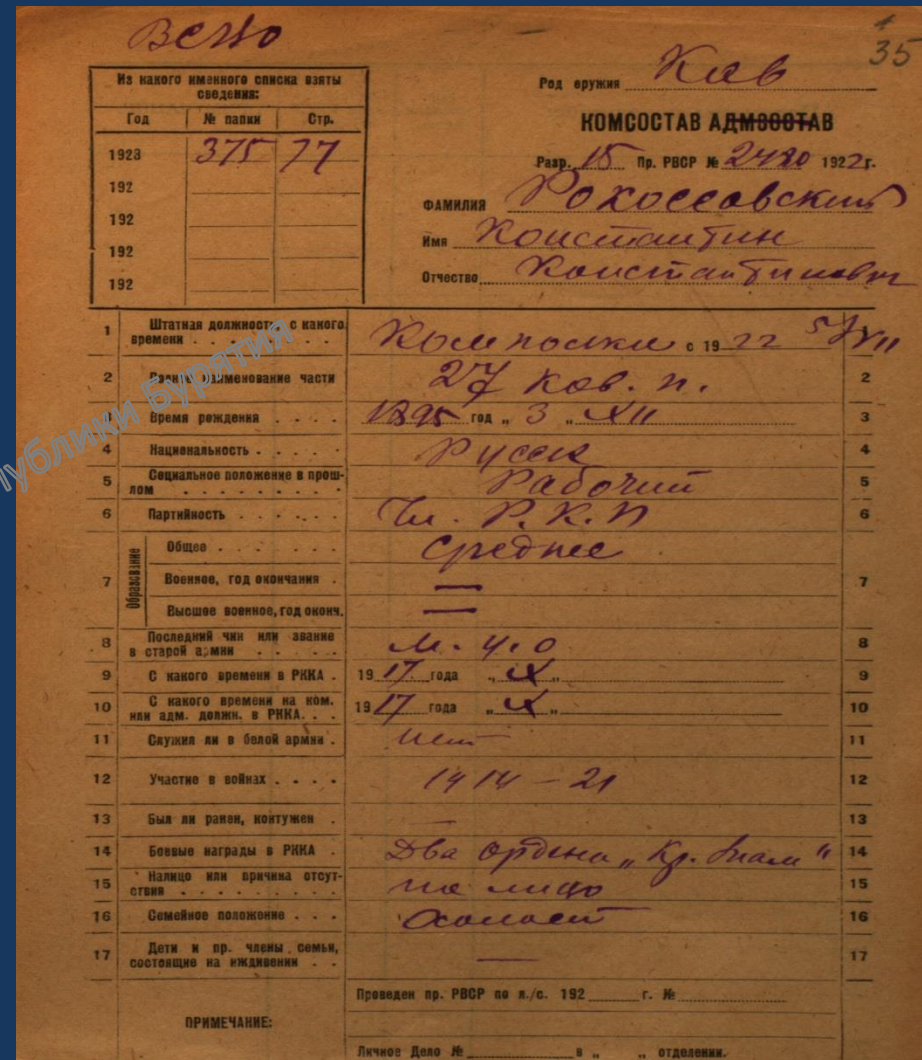 35
Из какого именного списка взяты
сведения:
Род оружия Кав
Год № папки Стр.
КОМСОСТАВ АДМСОСТАВ
1923 375 77
Разр. 15 Пр. РВСР № 1922 г.
192
ФАМИЛИЯ Рокоссовский
192
Имя Константин
192
Отчество Константинович
192
1 Штатная должность с какого
времени . . . . . . . с 19 22
2 наименование части 27 кав. п. 2
Время рождения . . . . 1895 год „ 3 „ XII 3
4 Национальность . . . . . Русск 4
5 Социальное положение в прош-
лом . . . . . . . . . Рабочий 5
6 Партийность . . . . . . Чл. Р.К.П 6
7 Образование Общее . . . . . . Среднее
Военное, год окончания . — 7
Высшее военное, год оконч. —
8 Последний чин или звание
в старой армии . . . . . м. у. о 8
9 С какого времени в РККА . 19 17 года „ X „ 9
10 С какого времени на ком.
или адм. должн. в РККА. . . 19 17 года „ X „ 10
11 Служил ли в белой армии . нет 11
12 Участие в войнах . . . . 1914 – 21 12
13 Был ли ранен, контужен . — 13
14 Боевые награды в РККА . Два ордена „Кр. Знам“ 14
15 Налицо или причина отсут-
ствия . . . . . . . . . на лицо 15
16 Семейное положение . . . 16
17 Дети и пр. члены семьи,
состоящие на иждивении . . — 17
Проведен пр. РВСР по л./с. 192 г. №
ПРИМЕЧАНИЕ:
Личное Дело № в „ „ отделении.
публики Бурятия